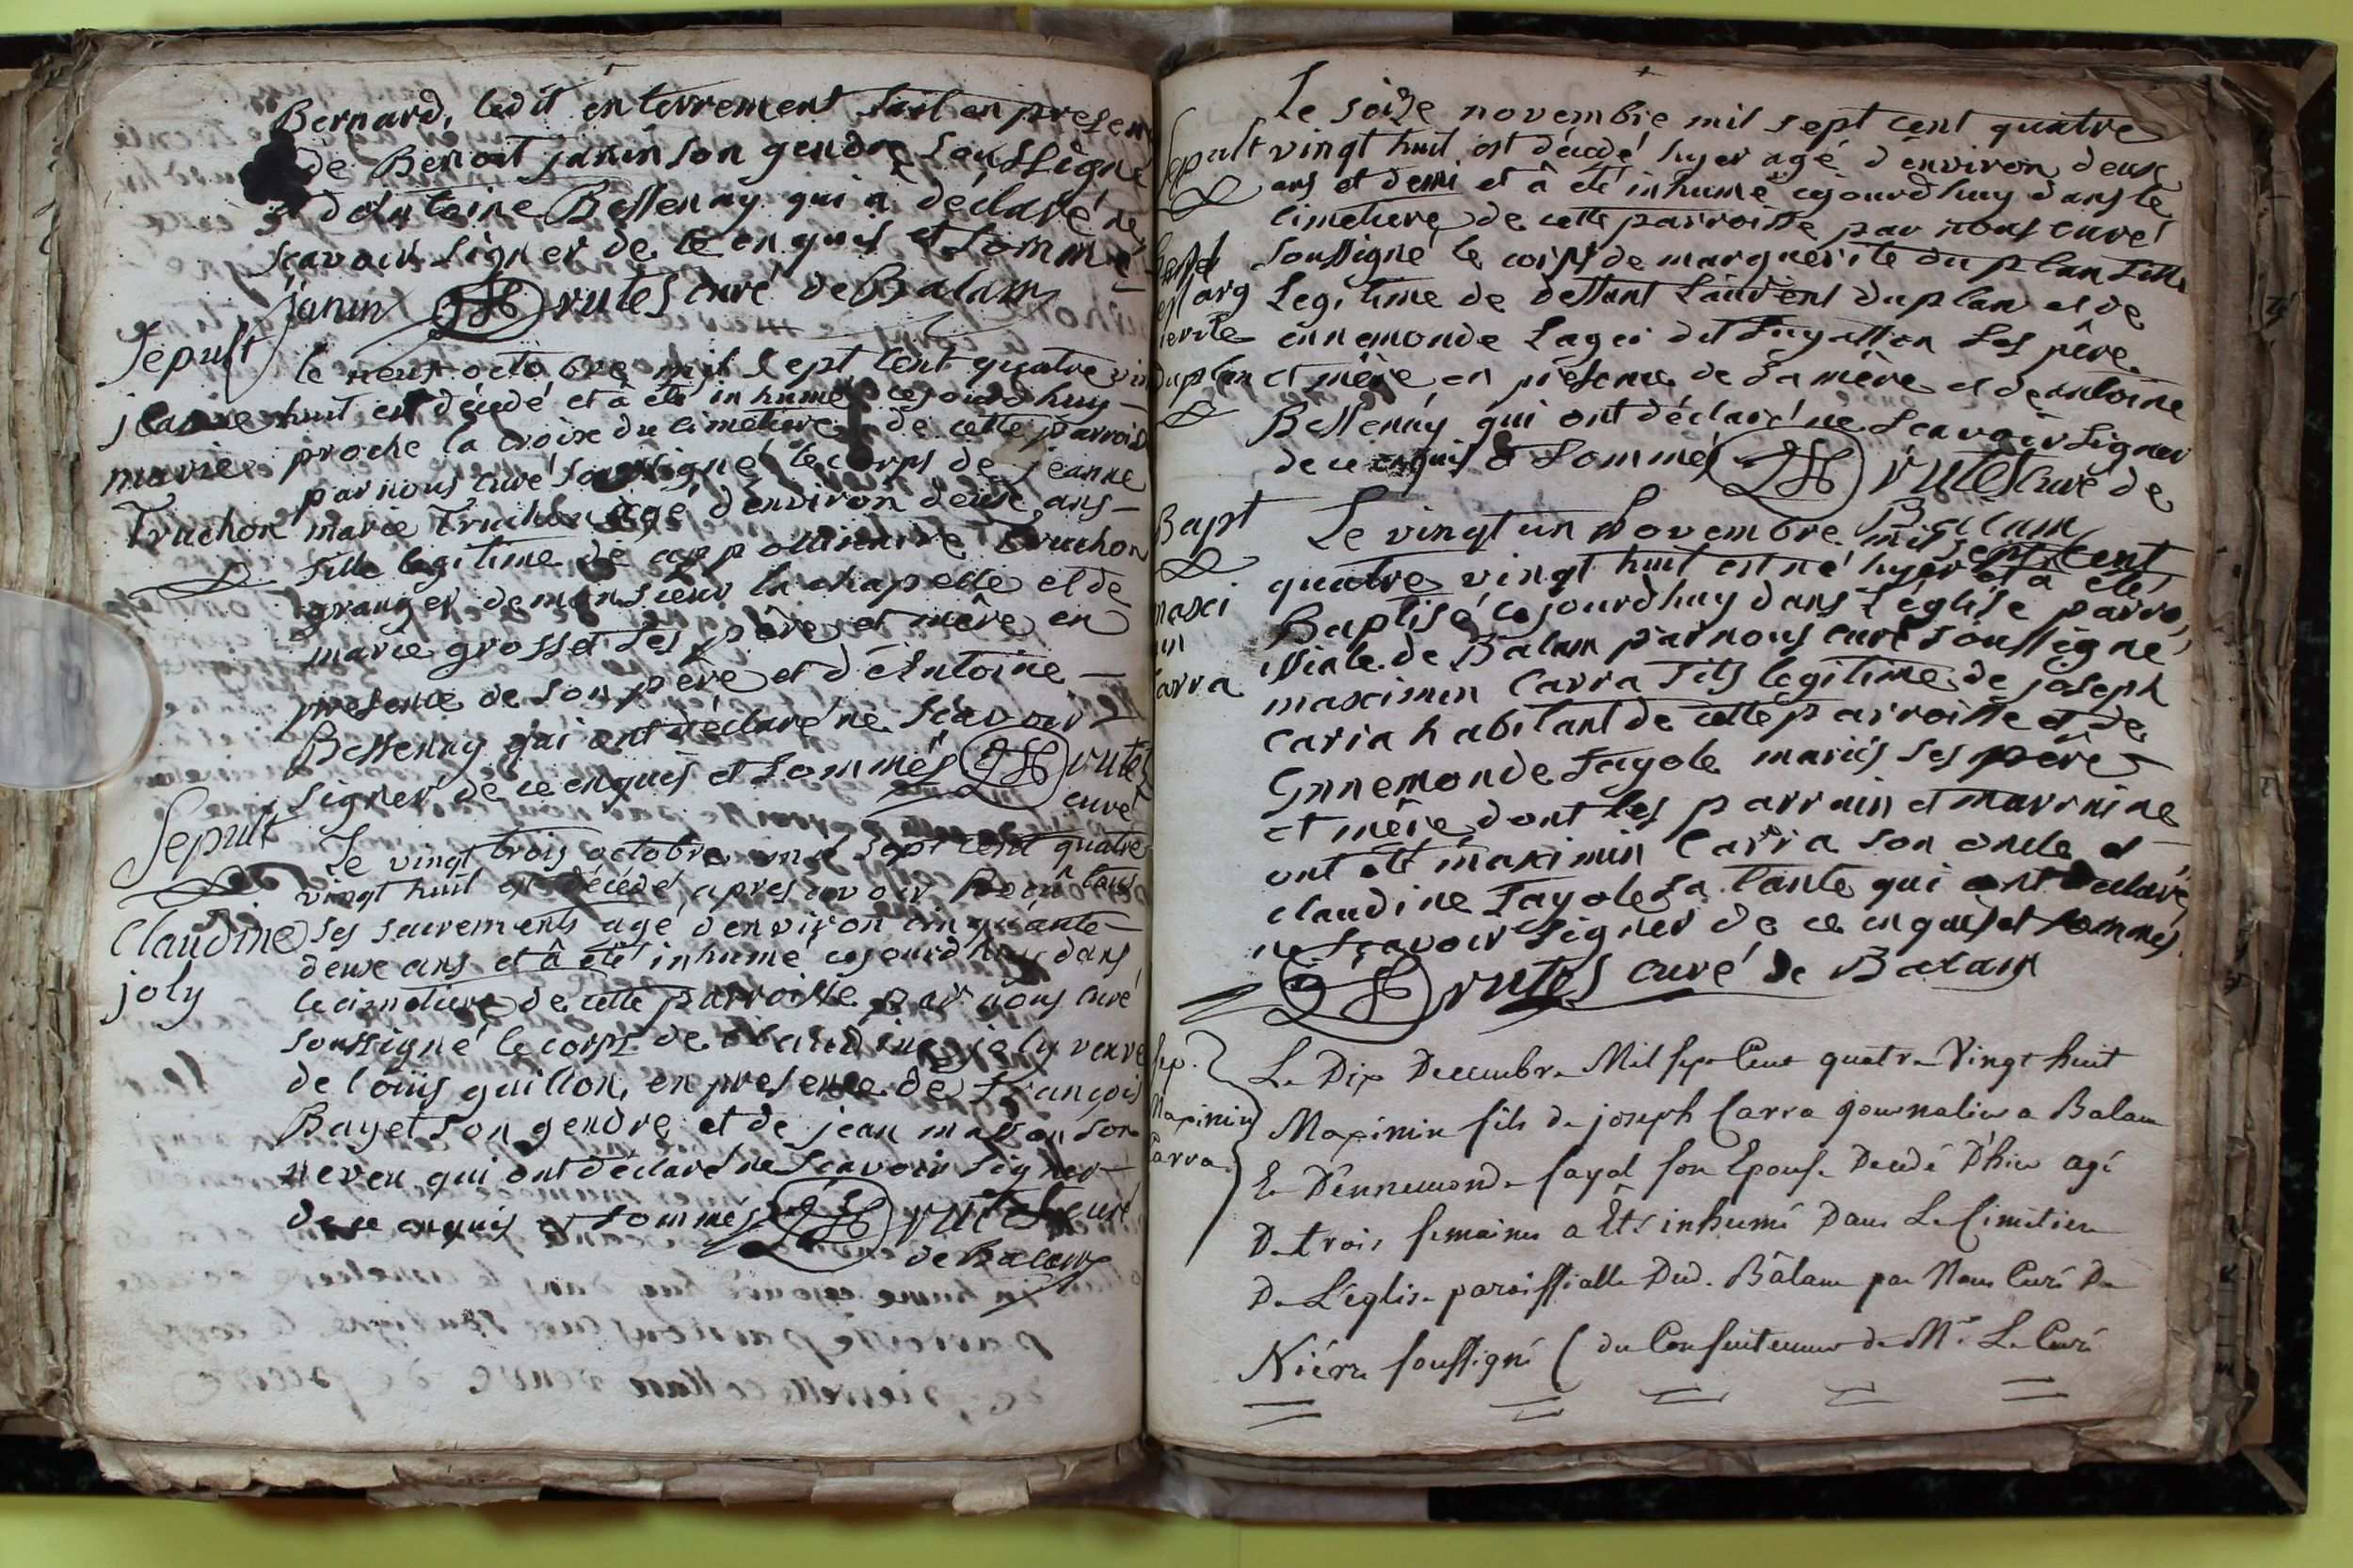 Bernard, ledit enterrement fait en presen
de Benoit janin son gendre soussigné
et d'Antoine Bessenay qui a déclaré ne
scavoir signer de ce enquis et sommé
janin rutes curé de Balam
Sepult
jeanne
marie
Truchon
le neuf octobre mil sept cent quatre vin
huit est décédé et à été inhumé cejourdhuy
proche la croix du cimetiere de cette parrois
par nous curé soussigné le corps de jeanne
marie Truchon agé d'environ deux ans
fille legitime de appollinaire Truchon
granger de monsieur la chapelle et de
marie grosset ses père et mère en
presence de son père et d'Antoine
Bessenay qui ont déclaré ne scavoir
signer de ce enquis et sommés rutes
curé
Sepult
Claudine
joly
Le vingt trois octobre mil sept cent quatre
vingt huit est décédé apres avoir Reçu tous
ses sacrements agé d'environ cinquante
deux ans et à été inhumé cejourdhuy dans
le cimetiere de cette parroisse par nous curé
soussigné le corps de claudine joly veuve
de loüis guillon, en presence de françois
Bayet son gendre et de jean masson son
neveu qui ont déclaré ne scavoir signer
de ce enquis et sommés rutes curé
de Balam
Sepult
marg
uerite
duplan
Le seize novembre mil sept cent quatre
vingt huit est décédé hyer agé d'environ deux
ans et demi et à été inhumé cejourdhuy dans le
cimetiere de cette parroisse par nous curé
soussigné le corps de marguerite duplan fille
legitime de deffunt Laurent duplan et de
ennemonde Lager dit ses père
et mère en présence de sa mère et de antoine
Bessenay qui ont déclaré ne scavoir signer
de ce enquis et sommés rutes curé de
Balam
Bapt
maxi
min
arra
Le vingt un Novembre mil sept cent
quatre vingt huit est né hyer et à été
Baptisé cejourdhuy dans l'eglise parro
issiale de Balam par nous curé soussigné
maximin Carra fils legitime de joseph
caria habitant de cette parroisse et de
Ennemonde fayole mariés ses père
et mère dont les parrain et marraine
ont été maximin Carra son oncle et
claudine fayole sa tante qui ont déclaré
ne scavoir signer de ce enquis et sommés
rutes curé de Balam
Sep.
Maximin
Carra
Le Dix Decembre Mil sept Cent quatre Vingt huit
Maximin fils de joseph Carra journalier a Balam
Et D'ennemonde fayol son Epouse Decedé D'hier agé
De trois semaines a Eté inhumé Dans Le Cimetiere
De L'eglise paroissialle Dud. Bâlam par Nous Curé De
Niévre soussigné ( du Consentement de Mr. Le Curé